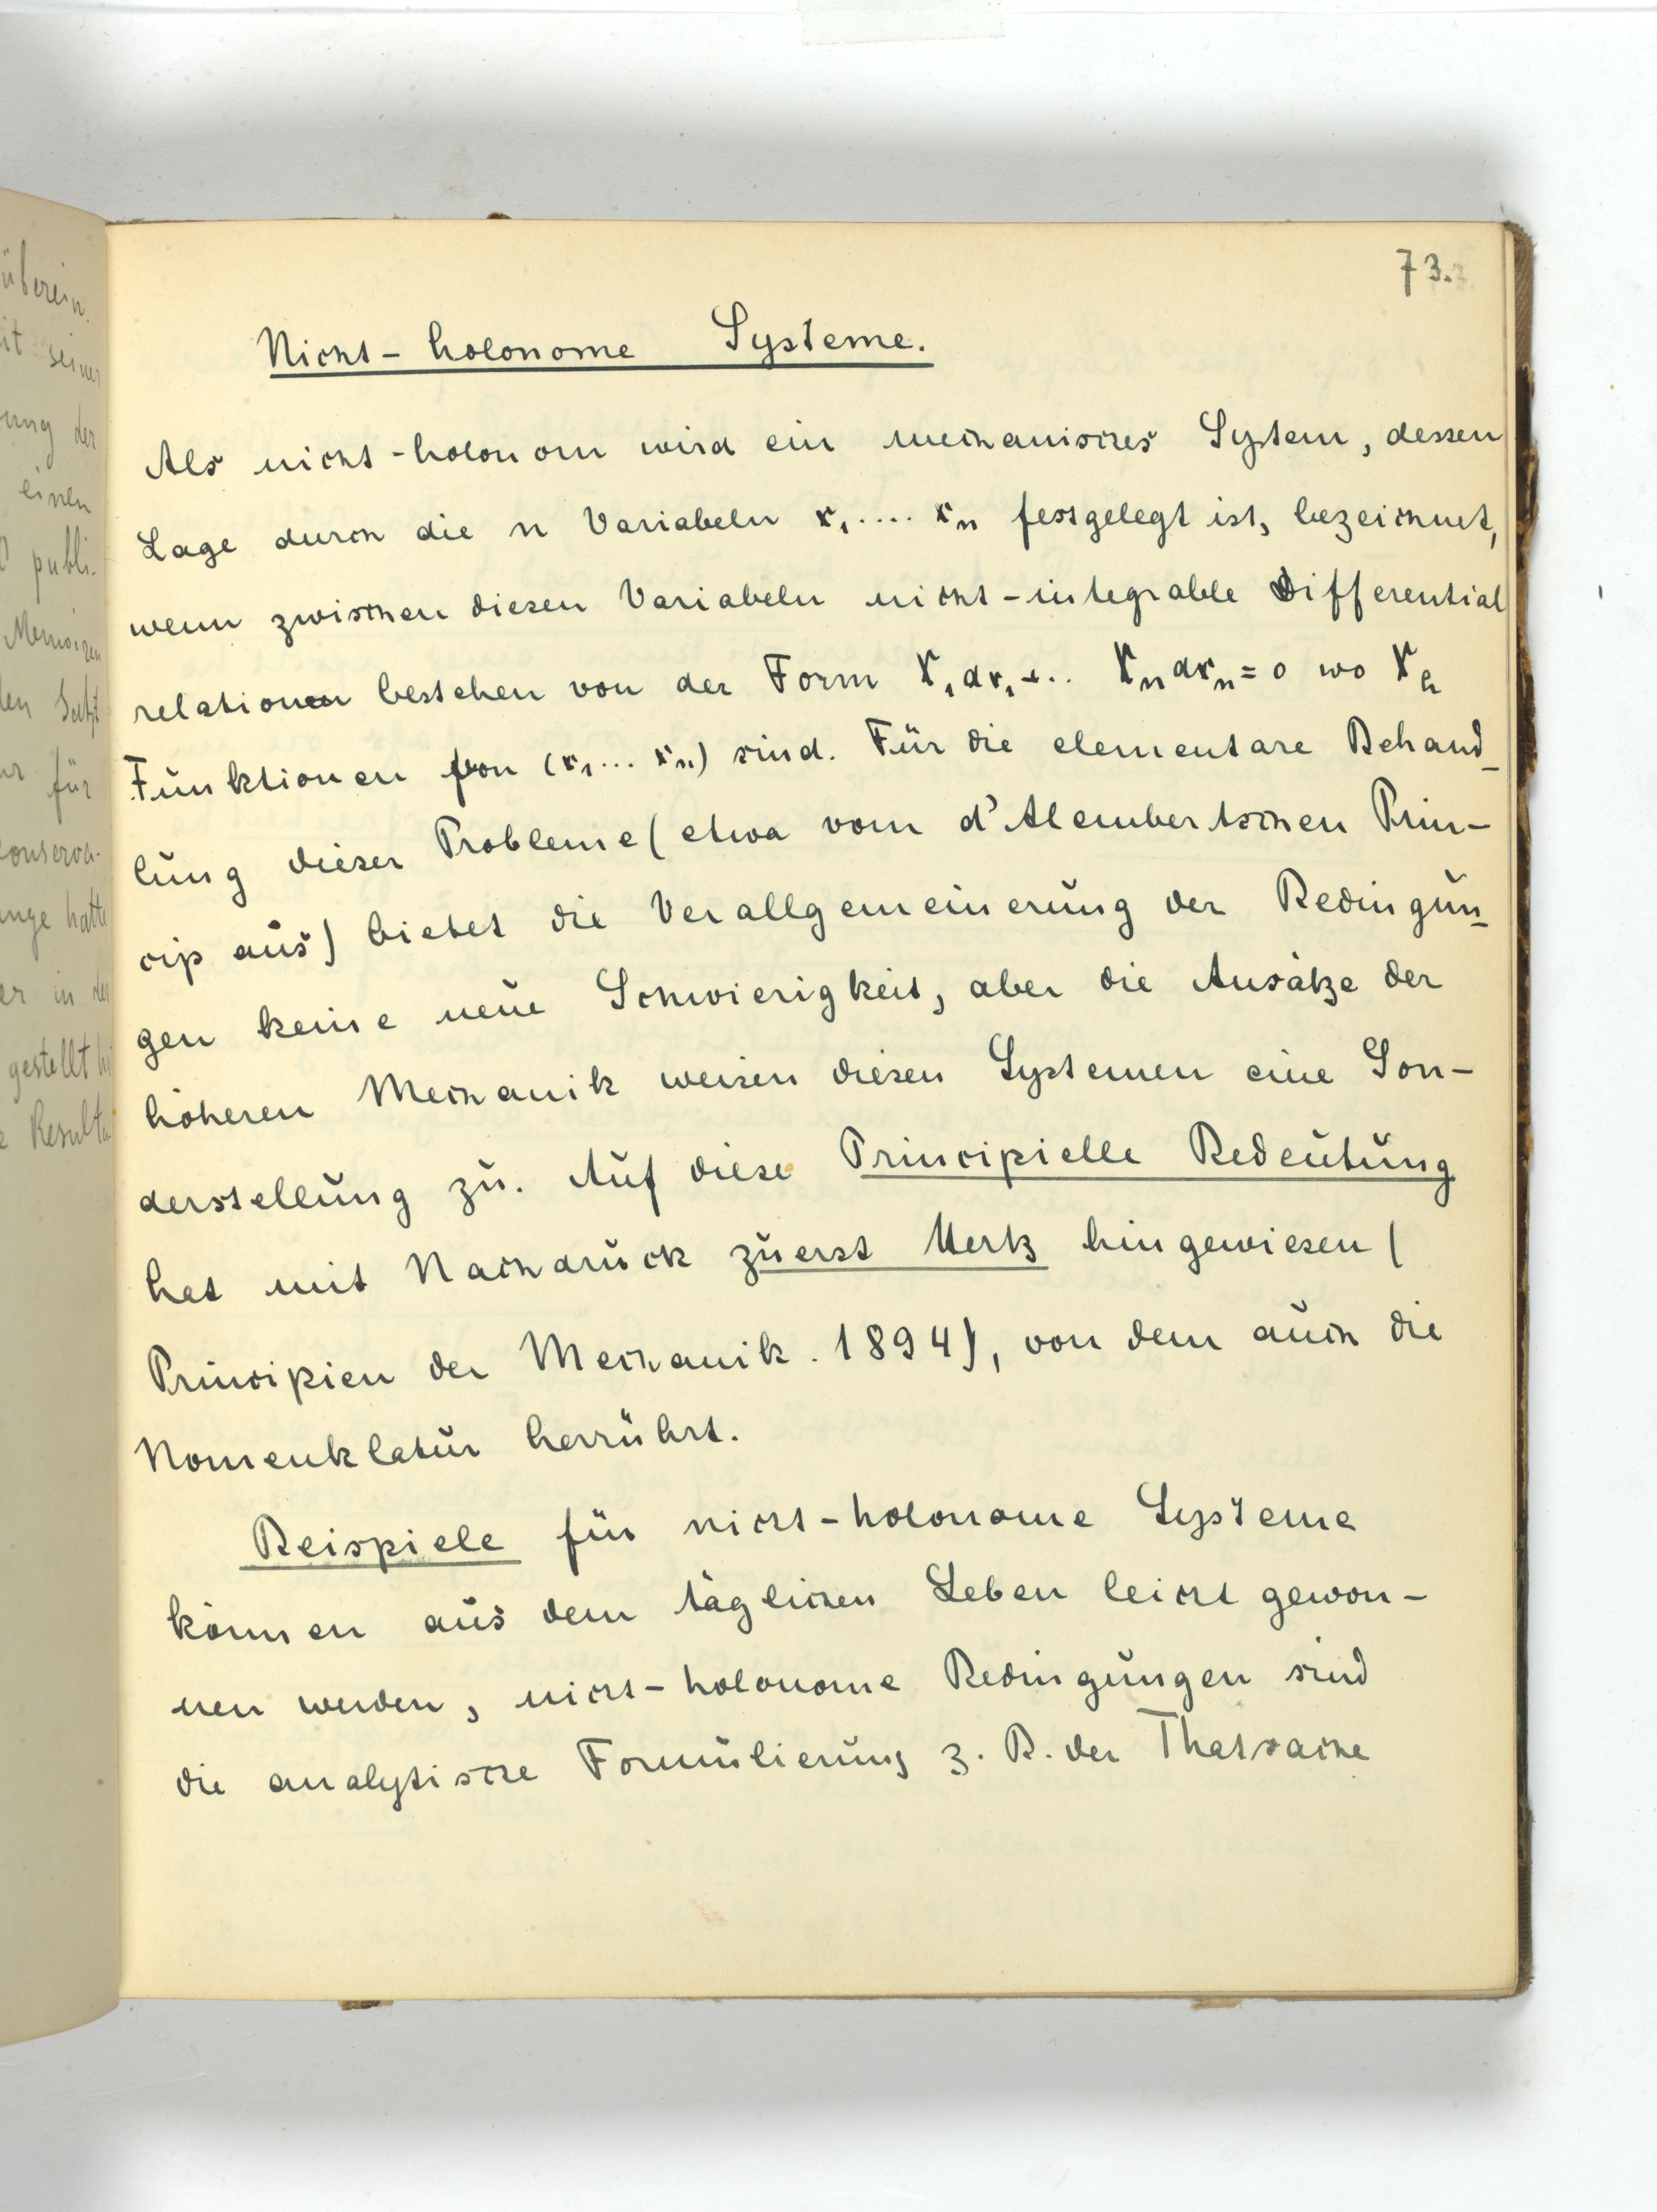 überein.
it seiner
ung der
einen
publi-
Memoiren
den Satz
für
conserva-
ange hatte
er in der
gestellt
Resulta
73.
Nicht-holonome Systeme.
Als nicht-holonom wird ein mechanisches System, dessen
Lage durch die n Variabeln x₁.... xₙ festgelegt ist, bezeichnet,
wenn zwischen diesen Variabeln nicht-integrable Differential
relationen bestehen von der Form X₁dx₁+.. Xₙdxₙ=0 wo Xₕ
Funktionen von (x₁... xₙ) sind. Für die elementare Behand-
lung dieser Probleme (etwa vom d'Alembertschen Prin-
cip aus) bietet die Verallgemeinerung der Bedingun-
gen keine neue Schwierigkeit, aber die Ansätze der
höheren Mechanik weisen diesen Systemen eine Son-
derstellung zu. Auf diese Principielle Bedeutung
hat mit Nachdruck zuerst Hertz hingewiesen (
Principien der Mechanik. 1894), von dem auch die
Nomenklatur herrührt.
Beispiele für nicht-holonome Systeme
können aus dem täglichen Leben leicht gewon-
nen werden, nicht-holonome Bedingungen sind
die analytische Formulierung z. B. der Thatsache